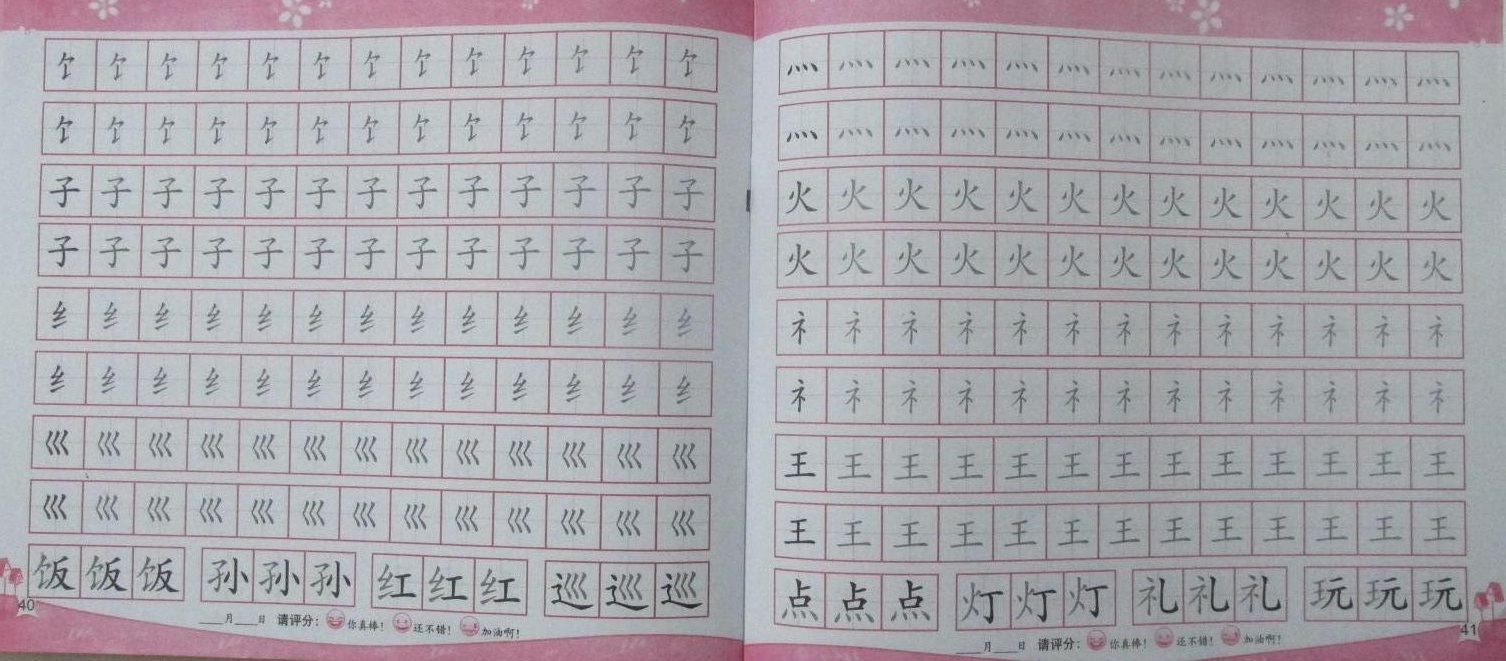 饣饣饣饣饣饣饣饣饣饣饣饣饣
饣饣饣饣饣饣饣饣饣饣饣饣饣
子子子子子子子子子子子子子
子子子子子子子子子子子子子
纟纟纟纟纟纟纟纟纟纟纟纟纟
纟纟纟纟纟纟纟纟纟纟纟纟纟
巛巛巛巛巛巛巛巛巛巛巛巛巛
巛巛巛巛巛巛巛巛巛巛巛巛巛
饭饭饭 孙孙孙 红红红 巡巡巡
40
___月___日 请评分: 你真棒! 还不错! 加油啊!
灬灬灬灬灬灬灬灬灬灬灬灬灬
灬灬灬灬灬灬灬灬灬灬灬灬灬
火火火火火火火火火火火火火
火火火火火火火火火火火火火
礻礻礻礻礻礻礻礻礻礻礻礻礻
礻礻礻礻礻礻礻礻礻礻礻礻礻
王王王王王王王王王王王王王
王王王王王王王王王王王王王
点点点 灯灯灯 礼礼礼 玩玩玩
41
___月___日 请评分: 你真棒! 还不错! 加油啊!